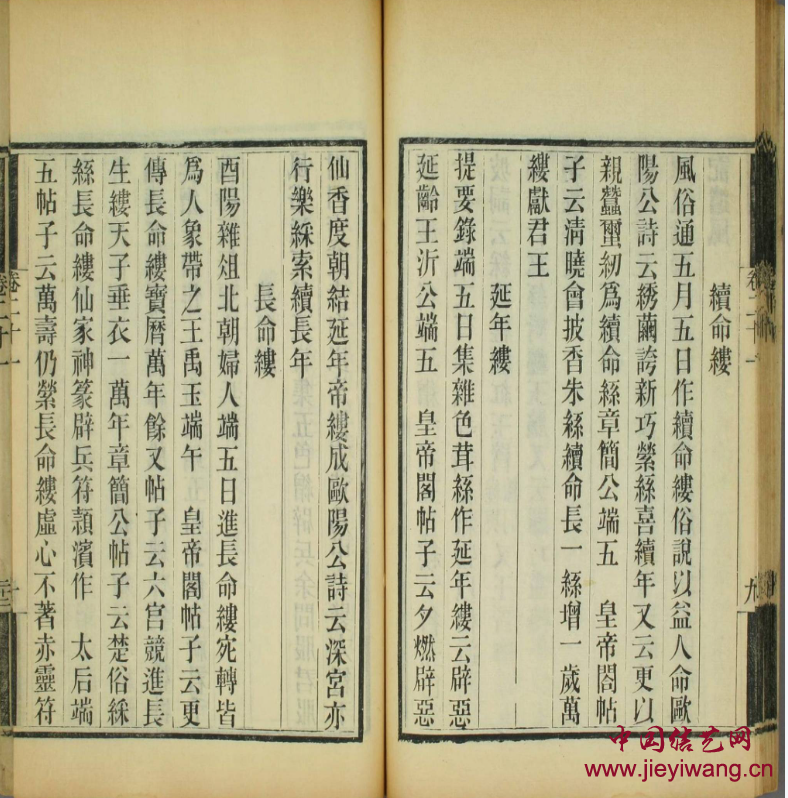 續命縷
風俗通五月五日作續命縷俗說以益人命歐
陽公詩云綉繭誇新巧縈絲喜續年又云更以
親蠶蠒紉爲續命絲章簡公端五　皇帝閤帖
子云清曉會披香朱絲續命長一絲增一歲萬
縷獻君王
延年縷
提要錄端五日集雜色茸絲作延年縷云辟惡
延齡王沂公端五　皇帝閣帖子云夕燃辟惡
仙香度朝結延年帝縷成歐陽公詩云深宮亦
行樂綵索續長年
長命縷
酉陽雜俎北朝婦人端五日進長命縷宛轉皆
爲人象帶之王禹玉端午　皇帝閣帖子云更
傳長命縷寶曆萬年餘又帖子云六宮競進長
生縷天子垂衣一萬年章簡公帖子云楚俗綵
絲長命縷仙家神篆辟兵符潁濱作　太后端
五帖子云萬壽仍縈長命縷虛心不著赤靈符
卷二十一
九
卷二十一
中国结艺网
www.jieyiwang.cn